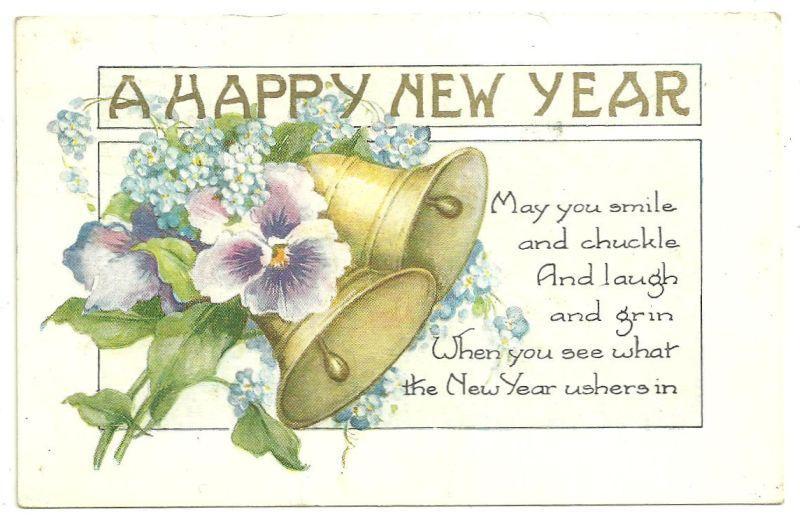 A HAPPY NEW YEAR
May you smile
and chuckle
And laugh
and grin
When you see what
the New Year ushers in